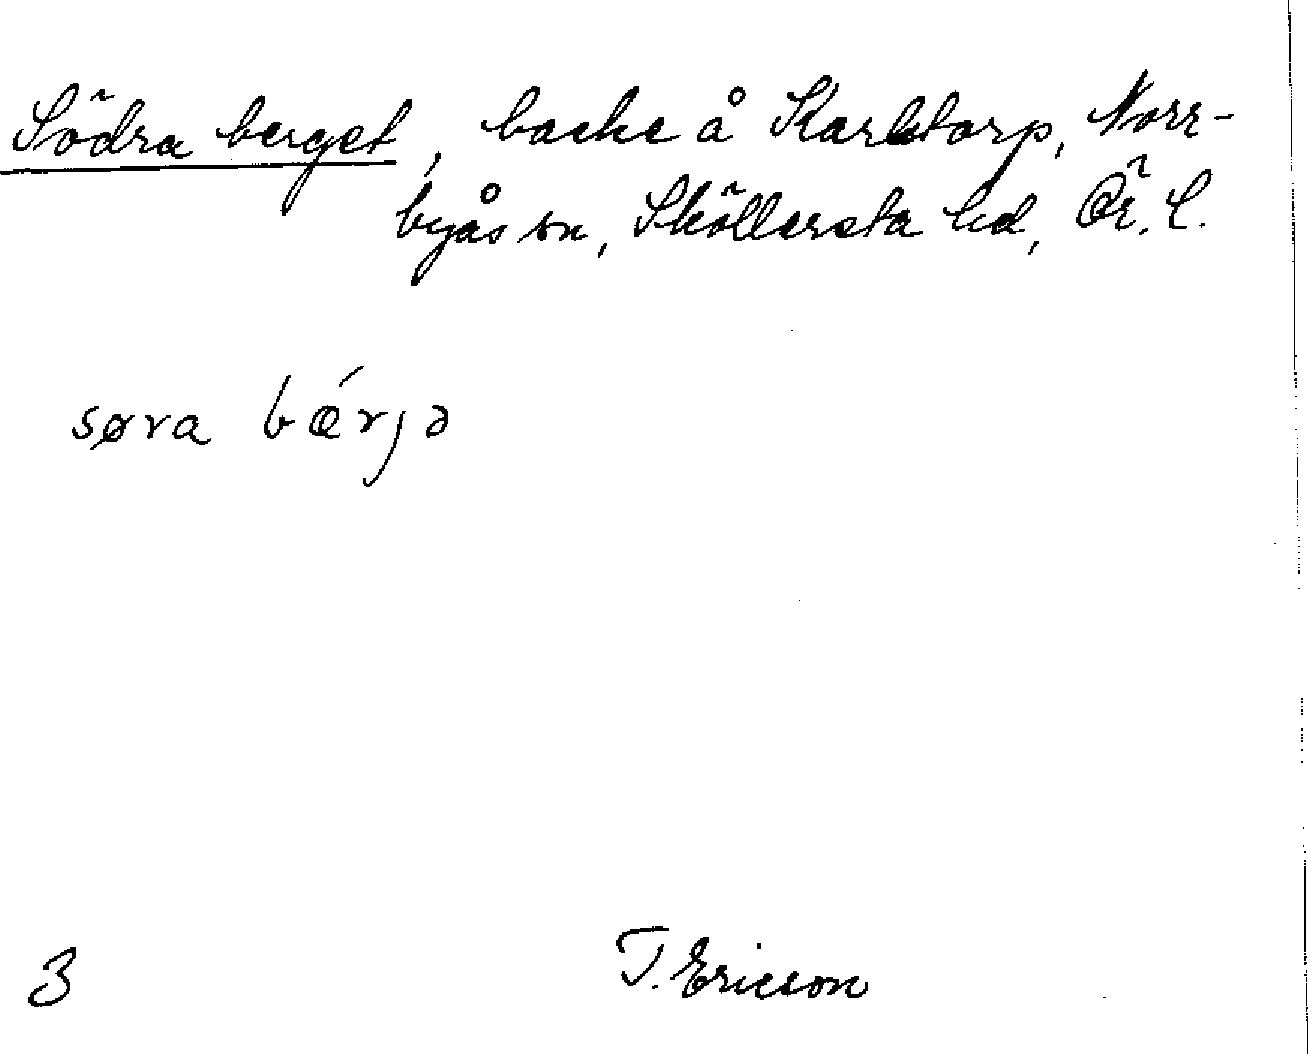 Södra berget, backe å Karlstorp, Norr-
byås sn, Sköllersta hd, Ör. l.
søra bǽrjə
3
T. Ericson